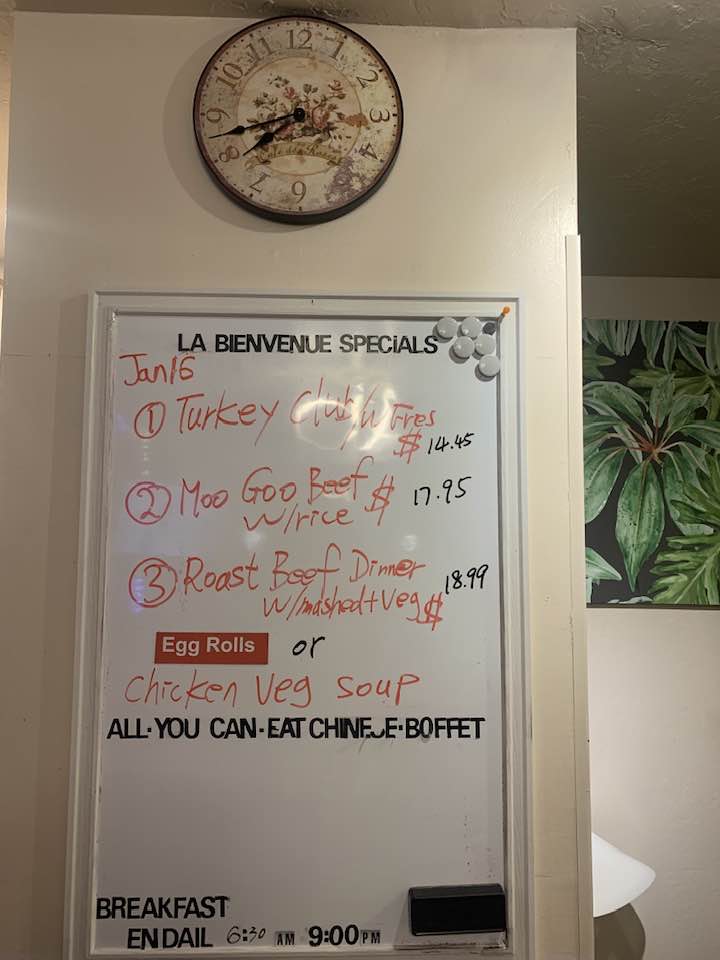 11 12 1
10 2
9 3
8 4
7 6
Café des Roses
LA BIENVENUE SPECIALS
Jan 16
① Turkey Club/w Fres
$ 14.45
② Moo Goo Beef $ 17.95
w/rice
③ Roast Beef Dinner 18.99
w/mashed+Veg $
Egg Rolls or
Chicken Veg soup
ALL·YOU CAN·EAT CHINEJE·BOFFET
BREAKFAST
EN DAIL 6:30 AM 9:00 PM